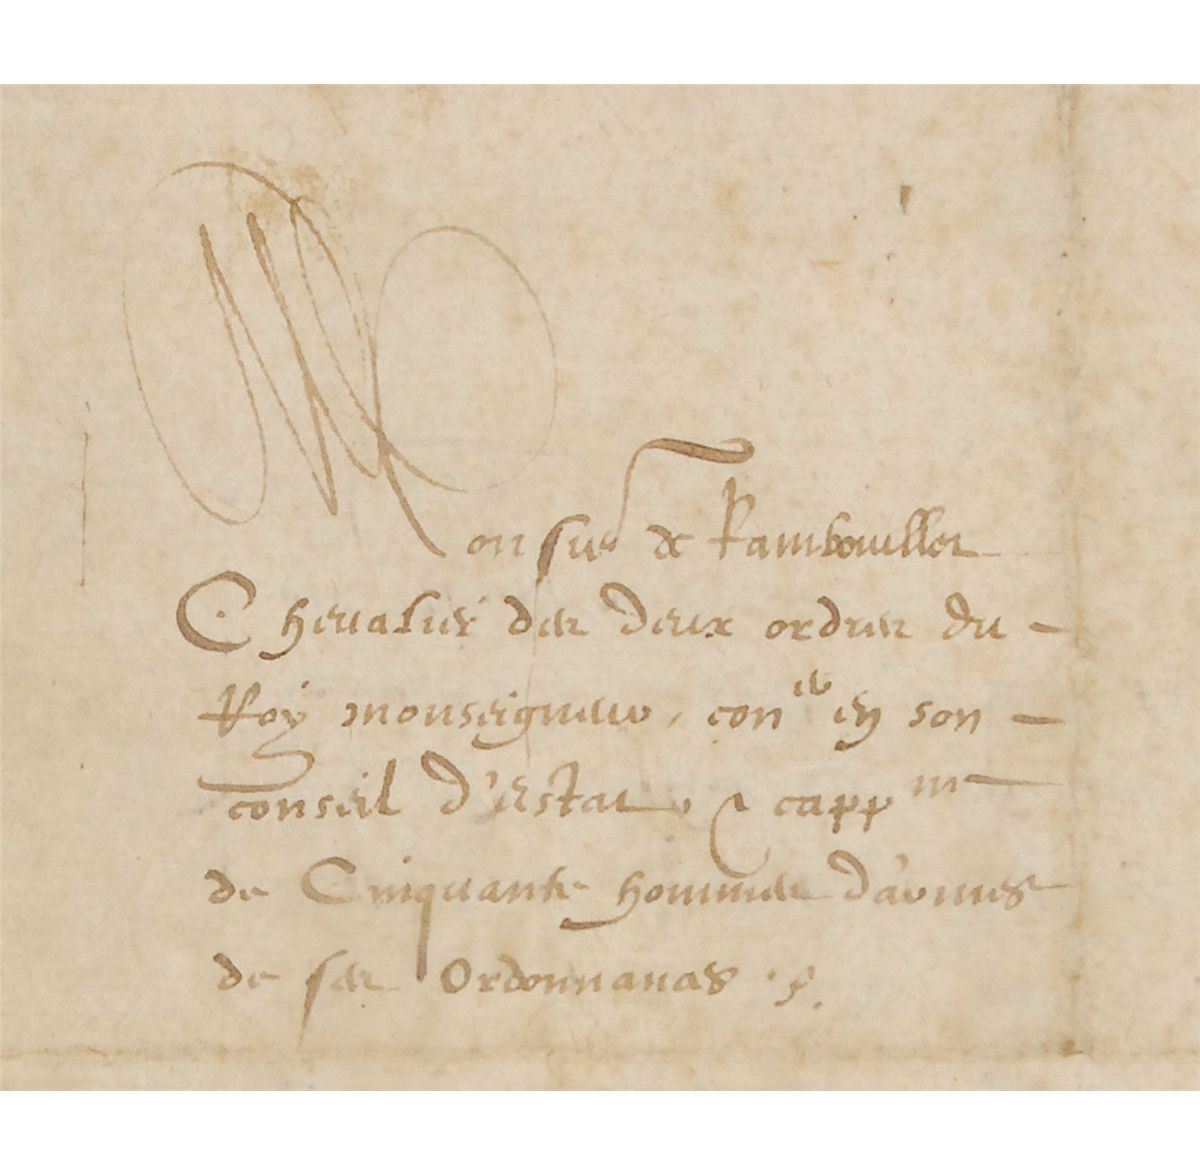 Monsieur de Rambouillet
Chevalier des deux ordres du
Roy monseigneur, con.er en son
conseil d'estat, & capp.ne
de Cinquante hommes d'armes
de ses Ordonnances